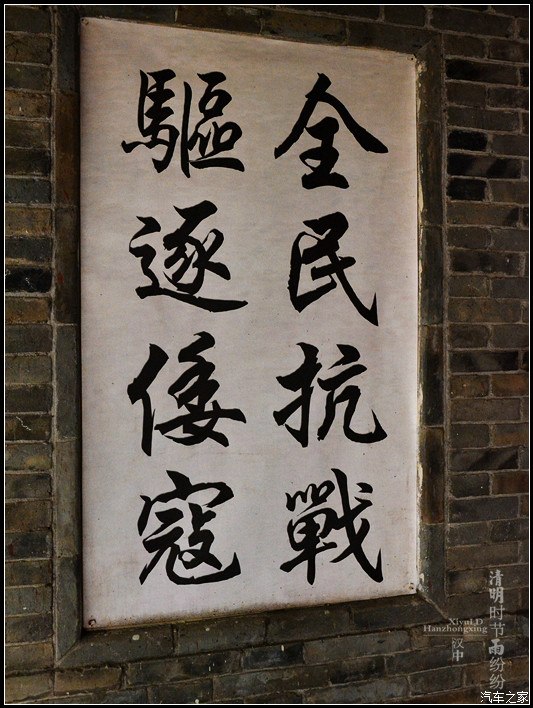 全民抗戰
驅逐倭寇
清明时节雨纷纷
XiyuLD
Hanzhongxing
汉中
汽车之家